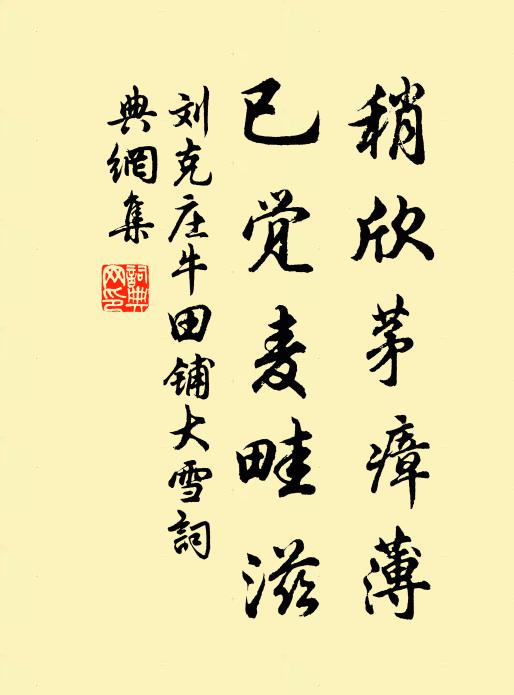 稍欣茅瘴薄
已觉麦畦滋
刘克庄牛田铺大雪詞
典網集
詞典网印